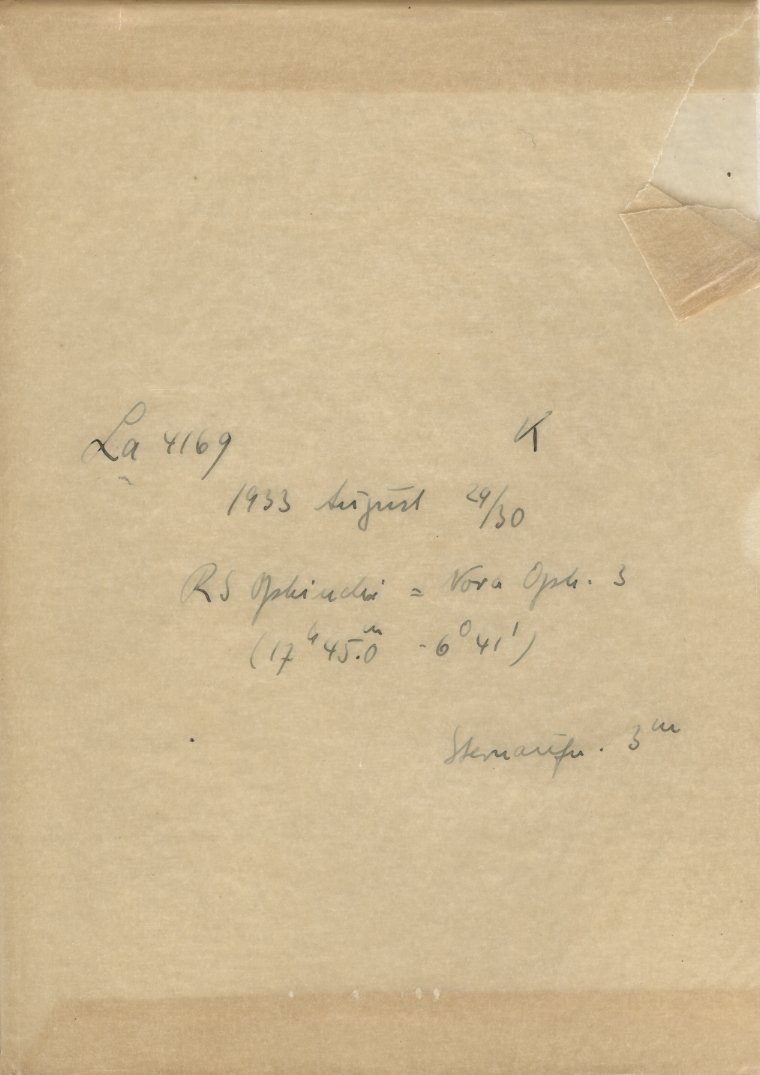 La 4169 K
1933 August 29/30
RS Ophiuchi = Nova Oph. 3
(17ʰ 45.ᵐ0 -6° 41')
Sternaufn. 3ᵐ